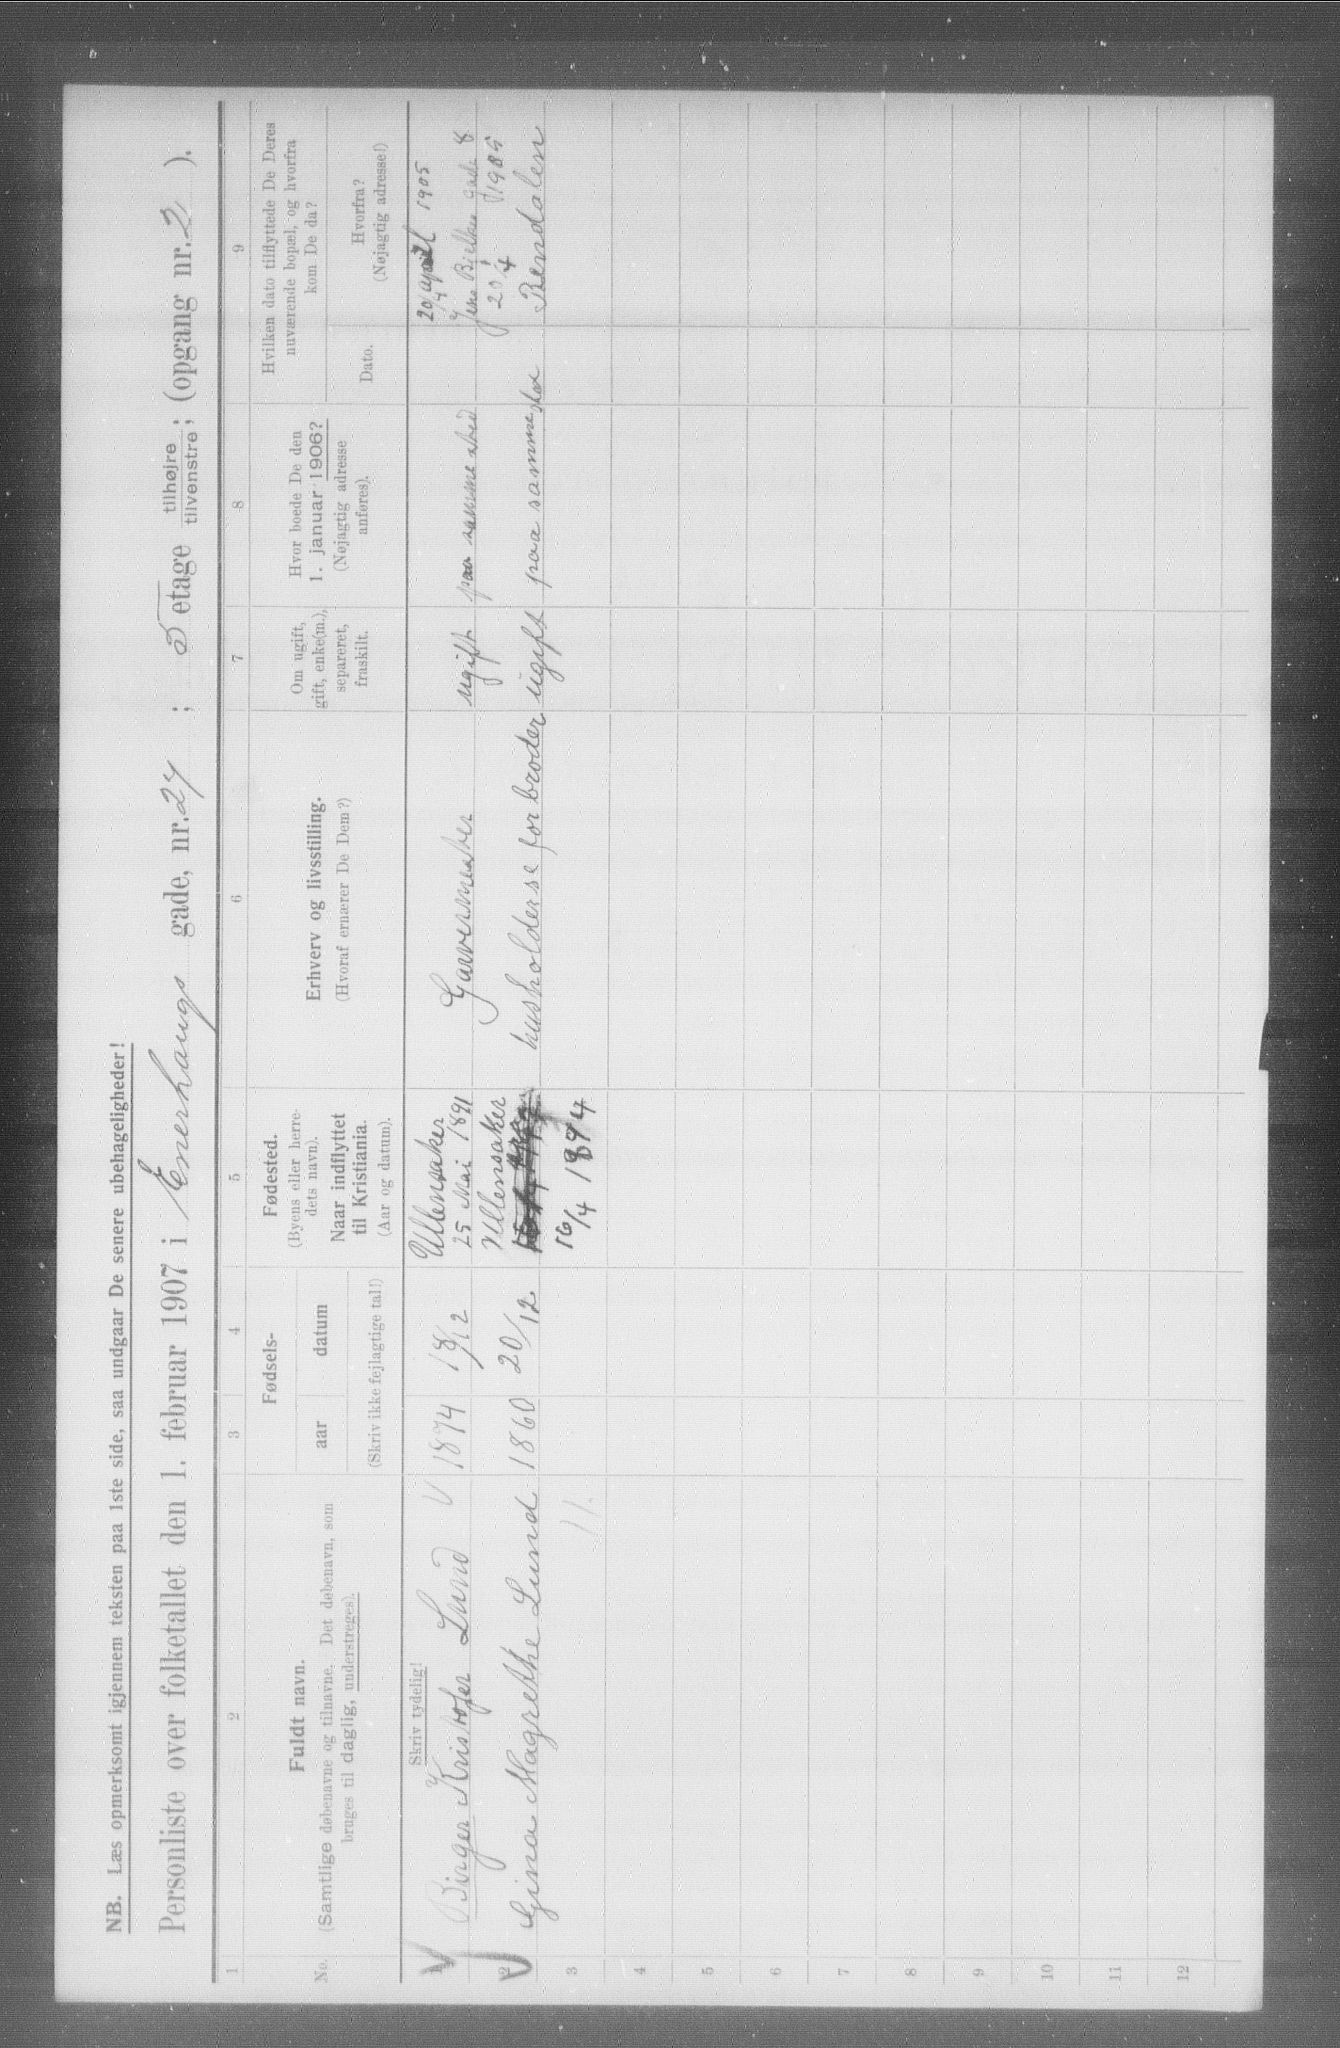 NB. Læs opmerksomt igjennem teksten paa 1ste side, saa undgaar De senere ubehageligheder!
Personliste over folketallet den 1. februar 1907 i Enerhaugs gade, nr. 24 ; etage tilhøjre tilvenstre; (opgang nr. 2 ).
1 2 3 4 5 6 7 8 9
No.
Fuldt navn.
(Samtlige døbenavne og tilnavne. Det døbenavn, som
bruges til daglig, understreges).
Fødsels-
aar datum
(Skriv ikke fejlagtige tal!)
Fødested.
(Byens eller herre-
dets navn).
Naar indflyttet
til Kristiania.
(Aar og datum).
Erhverv og livsstilling.
(Hvoraf ernærer De Dem?)
Om ugift,
gift, enke(m.),
separeret,
fraskilt.
Hvor boede De den
1. januar 1906?
(Nøjagtig adresse
anføres).
Hvilken dato tilflyttede De Deres
nuværende bopæl, og hvorfra
kom De da?
Dato.
Hvorfra?
(Nøjagtig adresse!)
Skriv tydelig!
1 Birger Kristofer Lund 1874 18/12 Ullensaker
25 Mai 1891 Garvermester ugift paa samme sted 20/4 april 1905
Jens Bjelkes gade 8
2 Gina Magrethe Lund 1860 20/12 Ullensaker
16/4 1894 husholderse for broder ugift paa samme sted 20/4 1905
Bendalen
3
4
5
6
7
8
9
10
11
12